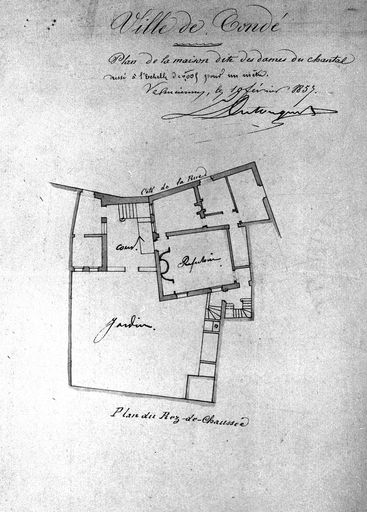 Ville de Condé
Plan de la maison dite des dames du chantal
à l'échelle de 0,005 pour un mètre.
Valenciennes, le 19 février 1857.
Côté de la Rue
cour.
Réfectoire
Jardin.
Plan du Rez-de-Chaussée